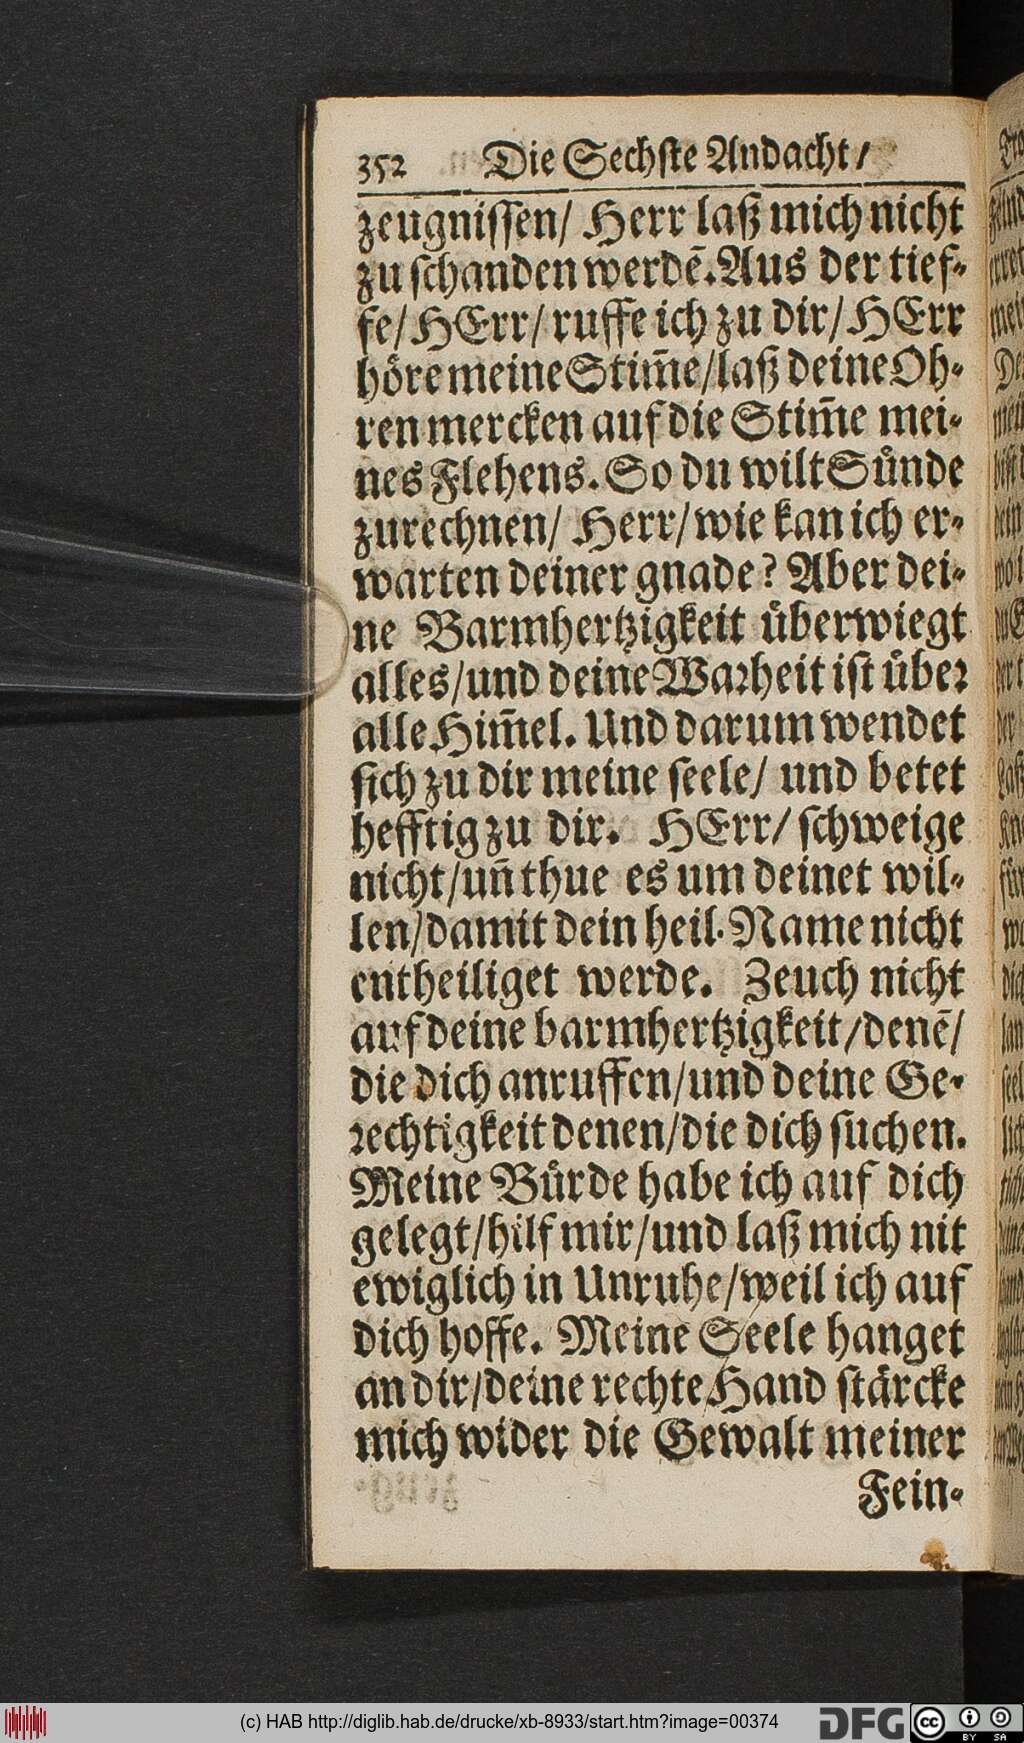 352 Die Sechste Andacht /
zeugnissen / Herr laß mich nicht
zu schanden werdẽ. Aus der tief-
fe / HErr / ruffe ich zu dir / HErr
höre meine Stim̃e / laß deine Oh-
ren mercken auf die Stim̃e mei-
nes Flehens. So du wilt Sünde
zurechnen / Herr / wie kan ich er-
warten deiner gnade? Aber dei-
ne Barmhertzigkeit überwiegt
alles / und deine Warheit ist über
alle Him̃el. Und darum wendet
sich zu dir meine seele / und betet
hefftig zu dir. HErr / schweige
nicht / uñ thue es um deinet wil-
len / damit dein heil. Name nicht
entheiliget werde. Zeuch nicht
auf deine barmhertzigkeit / denẽ /
die dich anruffen / und deine Ge-
rechtigkeit denen / die dich suchen.
Meine Bürde habe ich auf dich
gelegt / hilf mir / und laß mich nit
ewiglich in Unruhe / weil ich auf
dich hoffe. Meine Seele hanget
an dir / deine rechte Hand stärcke
mich wider die Gewalt meiner
Fein-
(c) HAB http://diglib.hab.de/drucke/xb-8933/start.htm?image=00374
DFG
cc BY SA